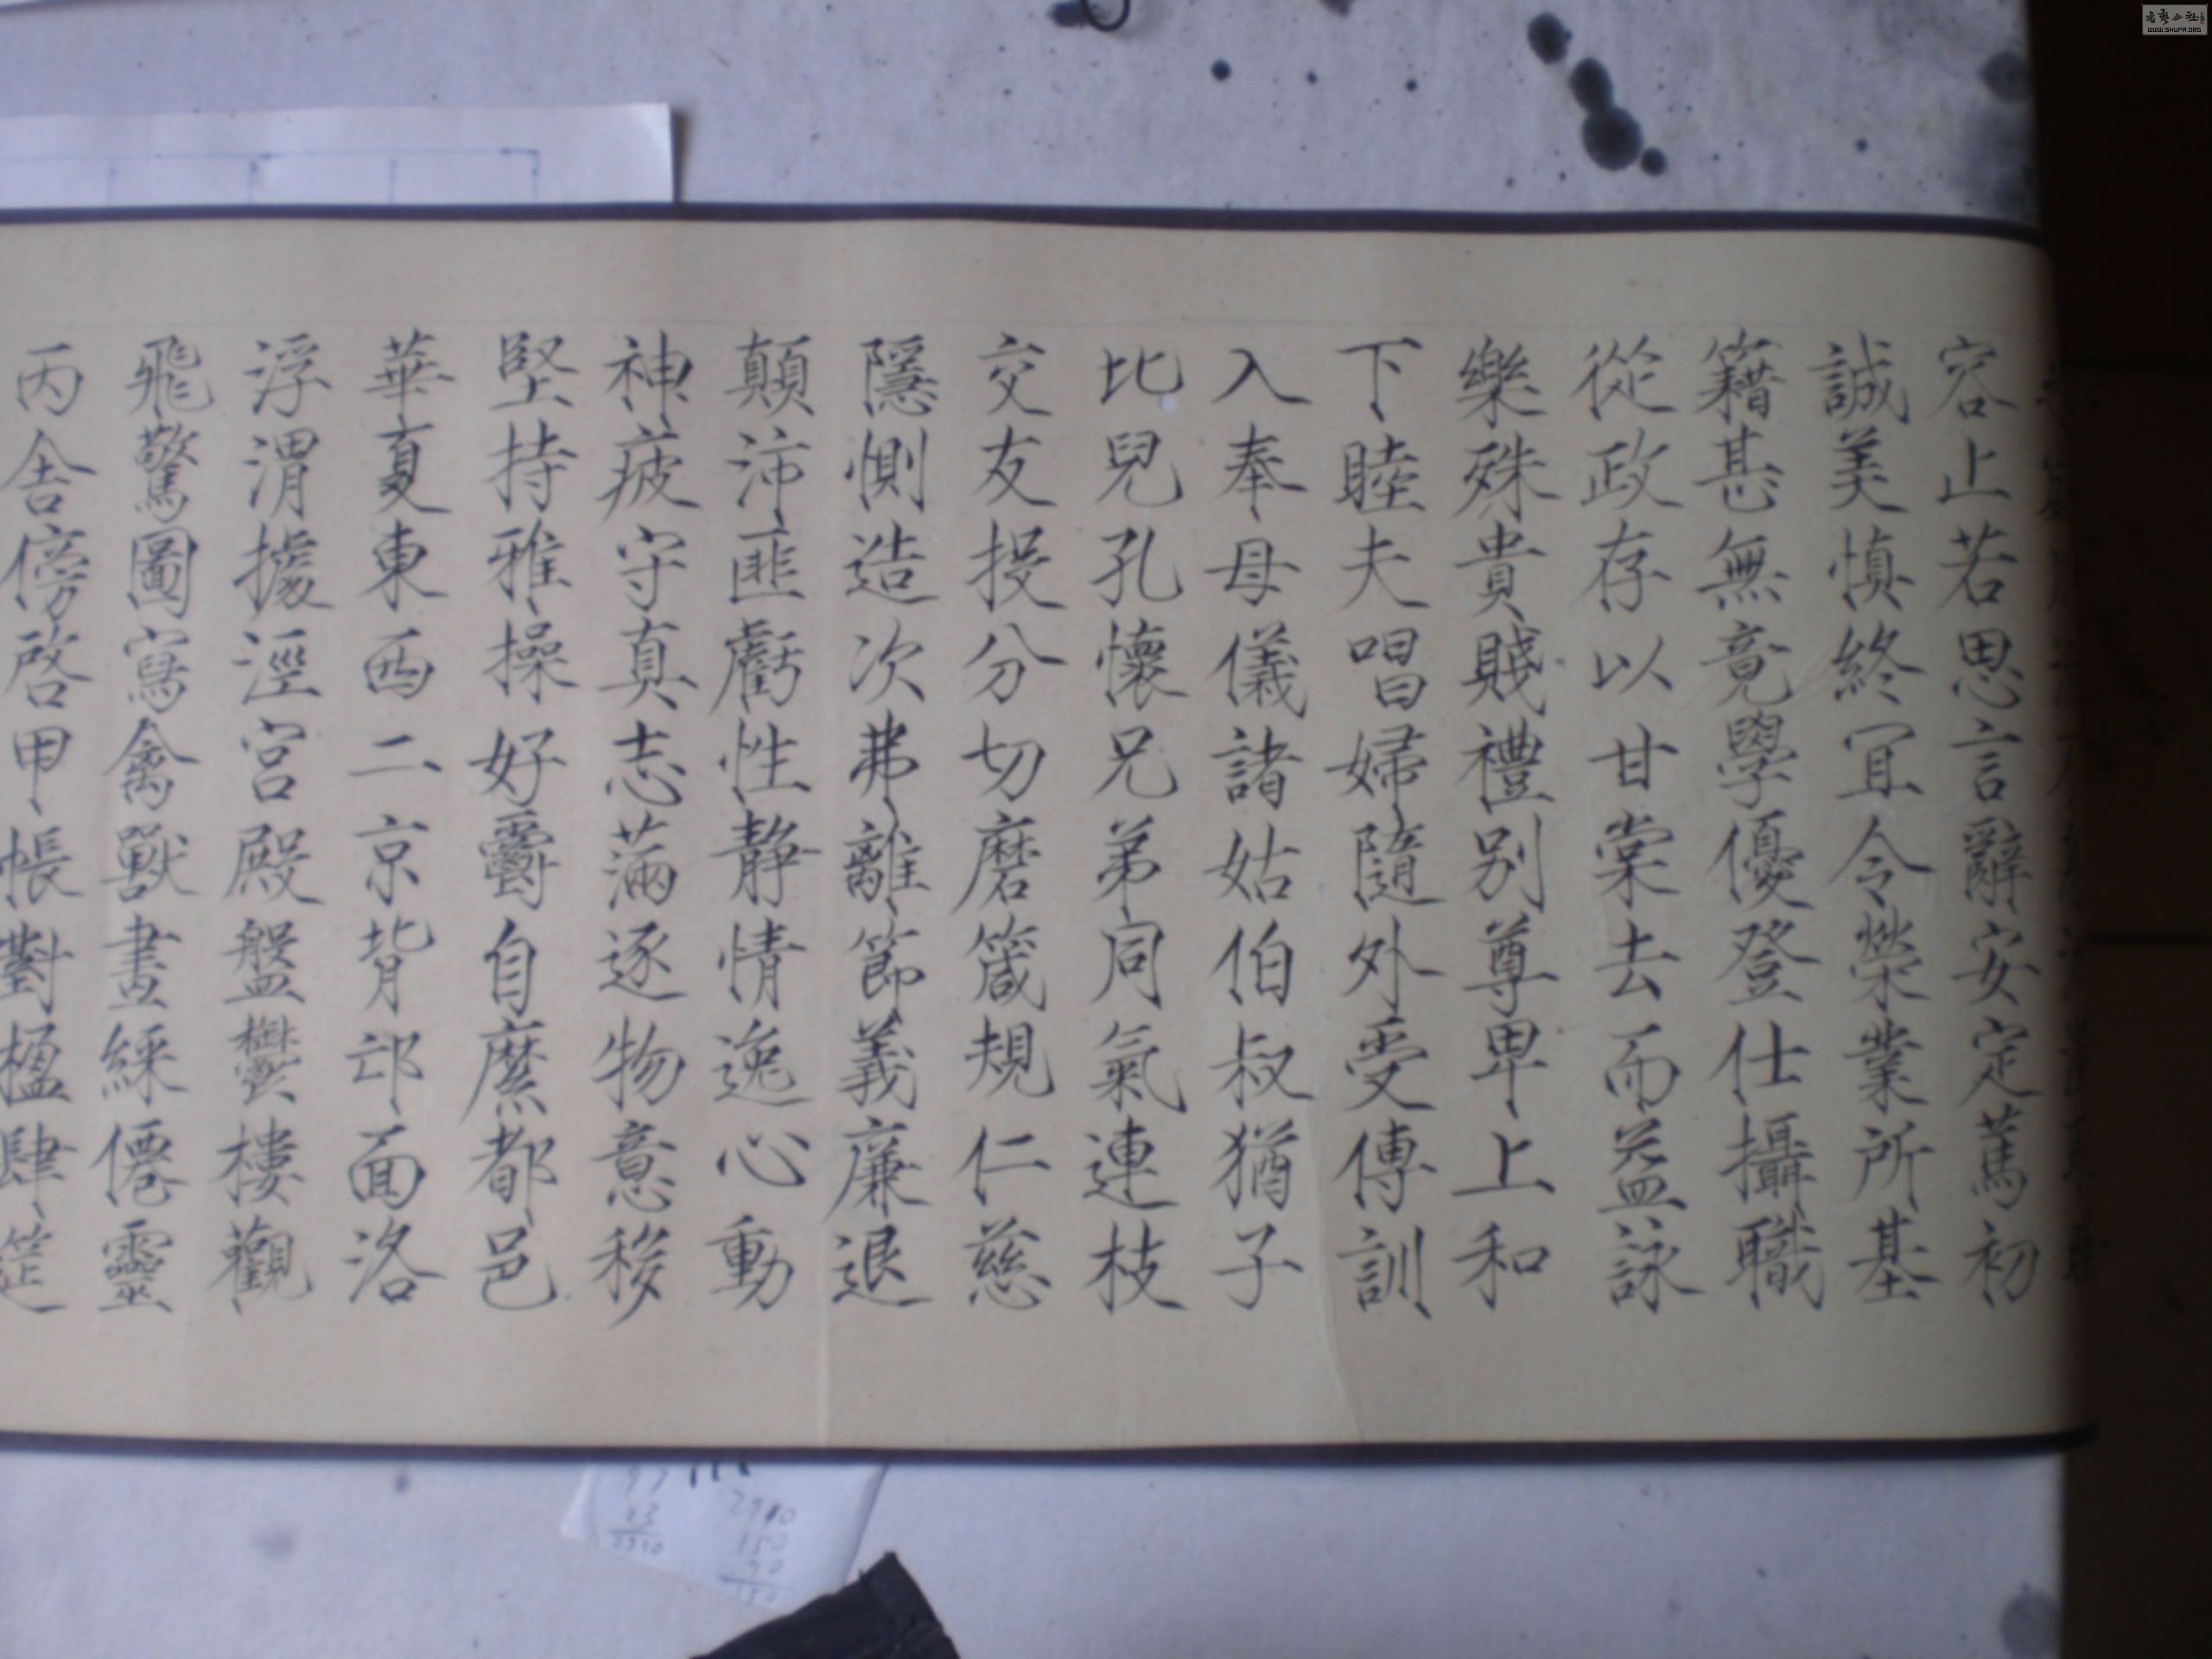 容止若思言辭安定篤初
誠美慎終宜令榮業所基
籍甚無竟學優登仕攝職
從政存以甘棠去而益詠
樂殊貴賤禮別尊卑上和
下睦夫唱婦隨外受傅訓
入奉母儀諸姑伯叔猶子
比兒孔懷兄弟同氣連枝
交友投分切磨箴規仁慈
隱惻造次弗離節義廉退
顛沛匪虧性靜情逸心動
神疲守真志滿逐物意移
堅持雅操好爵自縻都邑
華夏東西二京背邙面洛
浮渭據涇宮殿盤鬱樓觀
飛驚圖寫禽獸畫綵僊靈
丙舍傍啓甲帳對楹肆筵
2910
150
90
WWW.SHUFA.ORG